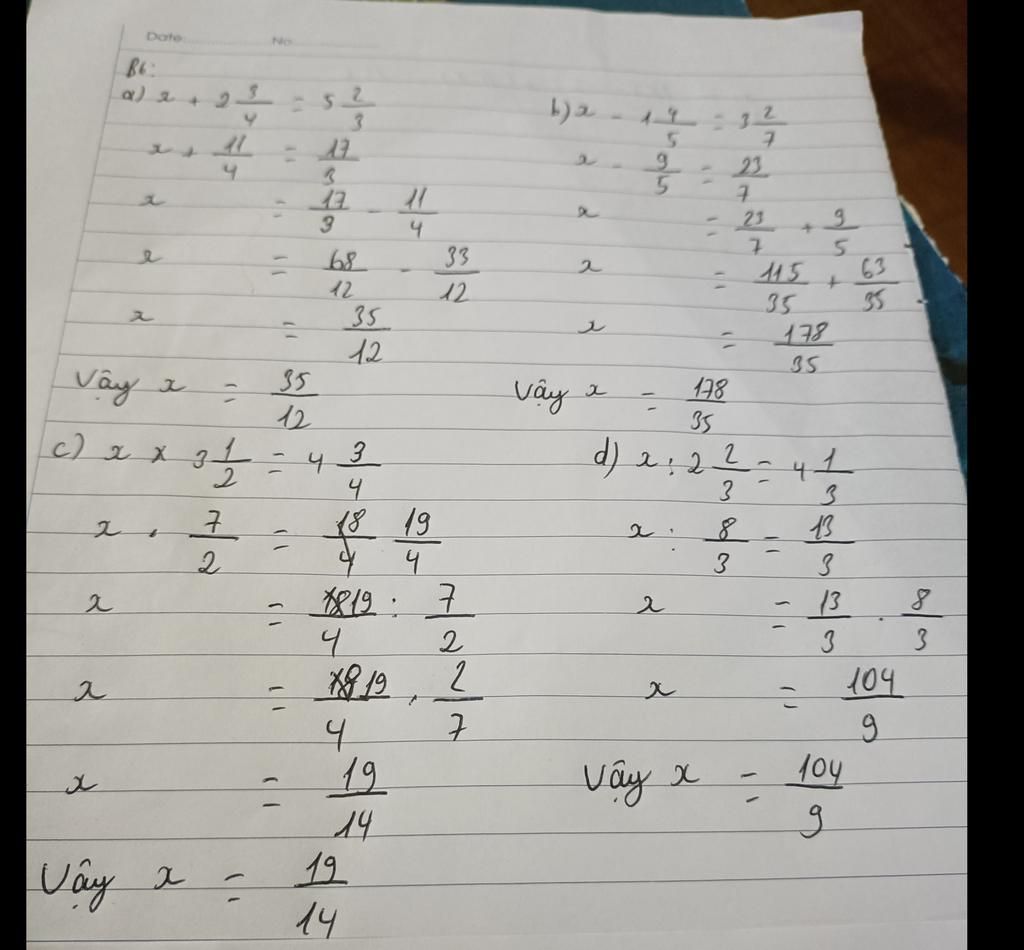 Date: No
B6:
a) x + 2 3/4 = 5 2/3
x + 11/4 = 17/3
x = 17/3 - 11/4
x = 68/12 - 33/12
x = 35/12
Vậy x = 35/12
b) x - 1 4/5 = 3 2/7
x - 9/5 = 23/7
x = 23/7 + 9/5
x = 115/35 + 63/35
x = 178/35
Vậy x = 178/35
c) x × 3 1/2 = 4 3/4
x . 7/2 = 19/4
x = 19/4 : 7/2
x = 19/4 . 2/7
x = 19/14
Vậy x = 19/14
d) x : 2 2/3 = 4 1/3
x : 8/3 = 13/3
x = 13/3 . 8/3
x = 104/9
Vậy x = 104/9